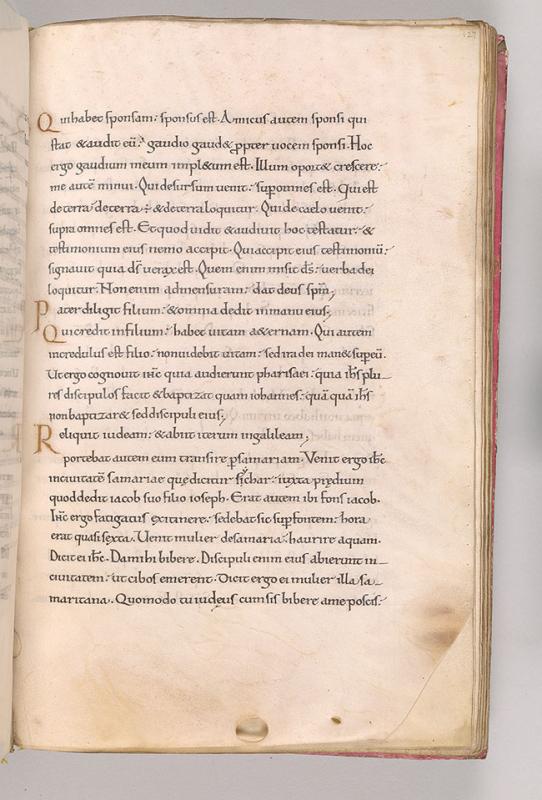 Qui habet sponsam: sponsus est. Amicus autem sponsi qui
stat & audit eū: gaudio gaud& ppter vocem sponsi. Hoc
ergo gaudium meum impl&um est. Illum oport& crescere:
me autē minui. Qui desursum venit: sup omnes est. Qui est
de terra: de terra ÷ & de terra loquitur. Qui de caelo venit:
supra omnes est. Et quod uidit & audiuit hoc testatur: &
testimonium eius nemo accipit. Qui accipit eius testimoniū:
signauit quia ds̄ uerax est. Quem enim misit ds̄: uerba dei
loquitur. Non enim ad mensuram: dat deus spm̄;
Pater diligit filium: & omnia dedit in manu eius;
Qui credit in filium: habet uitam a&ernam. Qui autem
incredulus est filio: non uidebit uitam: sed ira dei man& sup eū.
Ut ergo cognouit ihc̄ quia audierunt pharisaei: quia ihs̄ plu-
res discipulos facit & baptizat quam iohannes: quāquā ihs̄
non baptizar& sed discipuli eius;
Reliquit iudeam: & abiit iterum in galileam;
portebat autem eum transire p samariam. Venit ergo ihc̄
in ciuitatē samariae quę dicitur sychar: iuxta prędium
quod dedit iacob suo filio ioseph. Erat autem ibi fons iacob.
Ihc̄ ergo fatigatus ex itinere: sedebat sic sup fontem: hora
erat quasi sexta. Uenit mulier de samaria: haurire aquam.
Dicit ei ihc̄. Da mihi bibere. Discipuli enim eius abierunt in-
ciuitatem: ut cibos emerent. Dicit ergo ei mulier illa sa-
maritana. Quomodo tu iudęus cum sis bibere a me poscis: